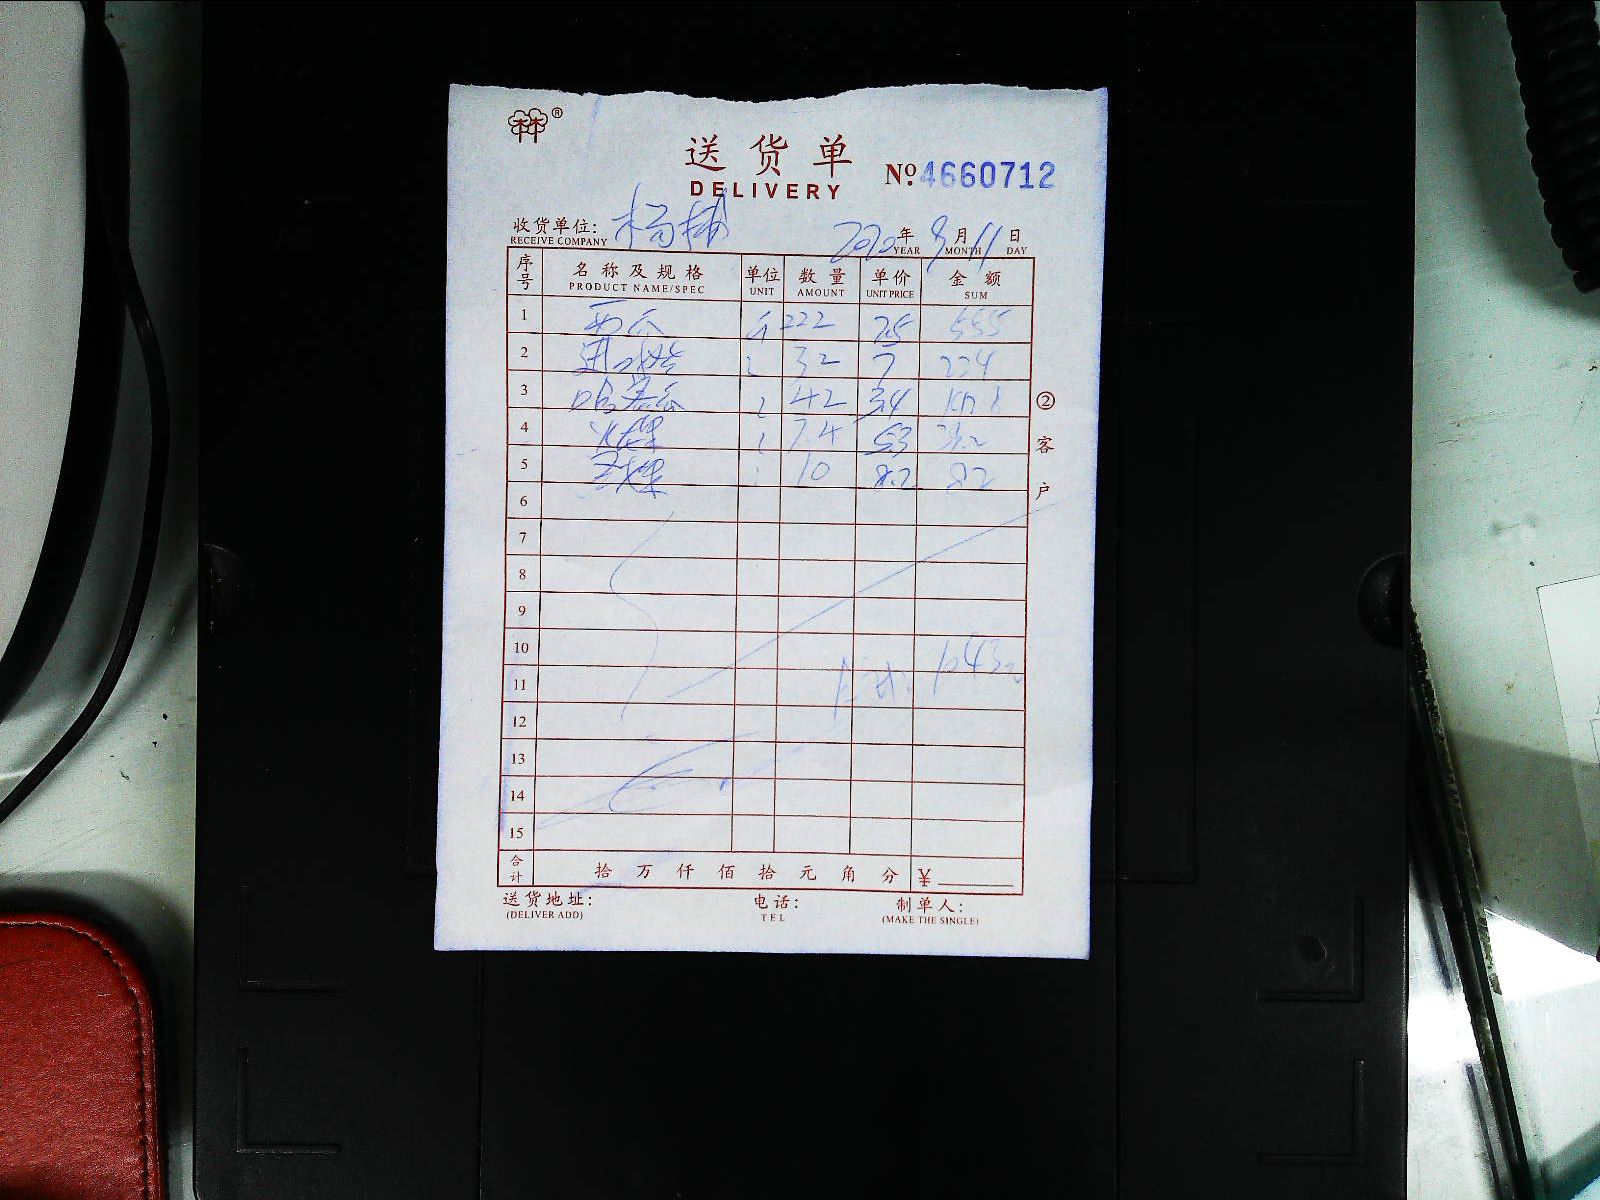 林®
送货单
DELIVERY
No. 4660712
收货单位: 杨梅 2020年9月11日
RECEIVE COMPANY YEAR MONTH DAY
序号 名称及规格 单位 数量 单价 金额
PRODUCT NAME/SPEC UNIT AMOUNT UNIT PRICE SUM
1 西瓜 斤 222 2.5 555
2 32 7 224
3 哈密瓜 42 3.4
4 火龙果 7.4 5.3 39.2
5 10 8.2 82
6
7
8
9
10
11
12
13
14
15
② 客户
合计 拾万仟佰拾元角分 ¥
送货地址: 电话: 制单人:
(DELIVER ADD) TEL (MAKE THE SINGLE)